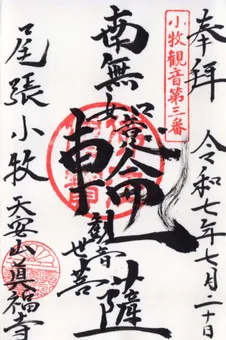 奉拝
令和七年七月二十日
小牧観音第三番
南無
観世音菩薩
尾張小牧
天安山真福寺